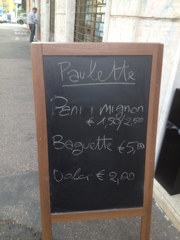 Paulette
Panini mignon
€ 1,50/2.50
Baguette €5,00
Dolci € 2,00